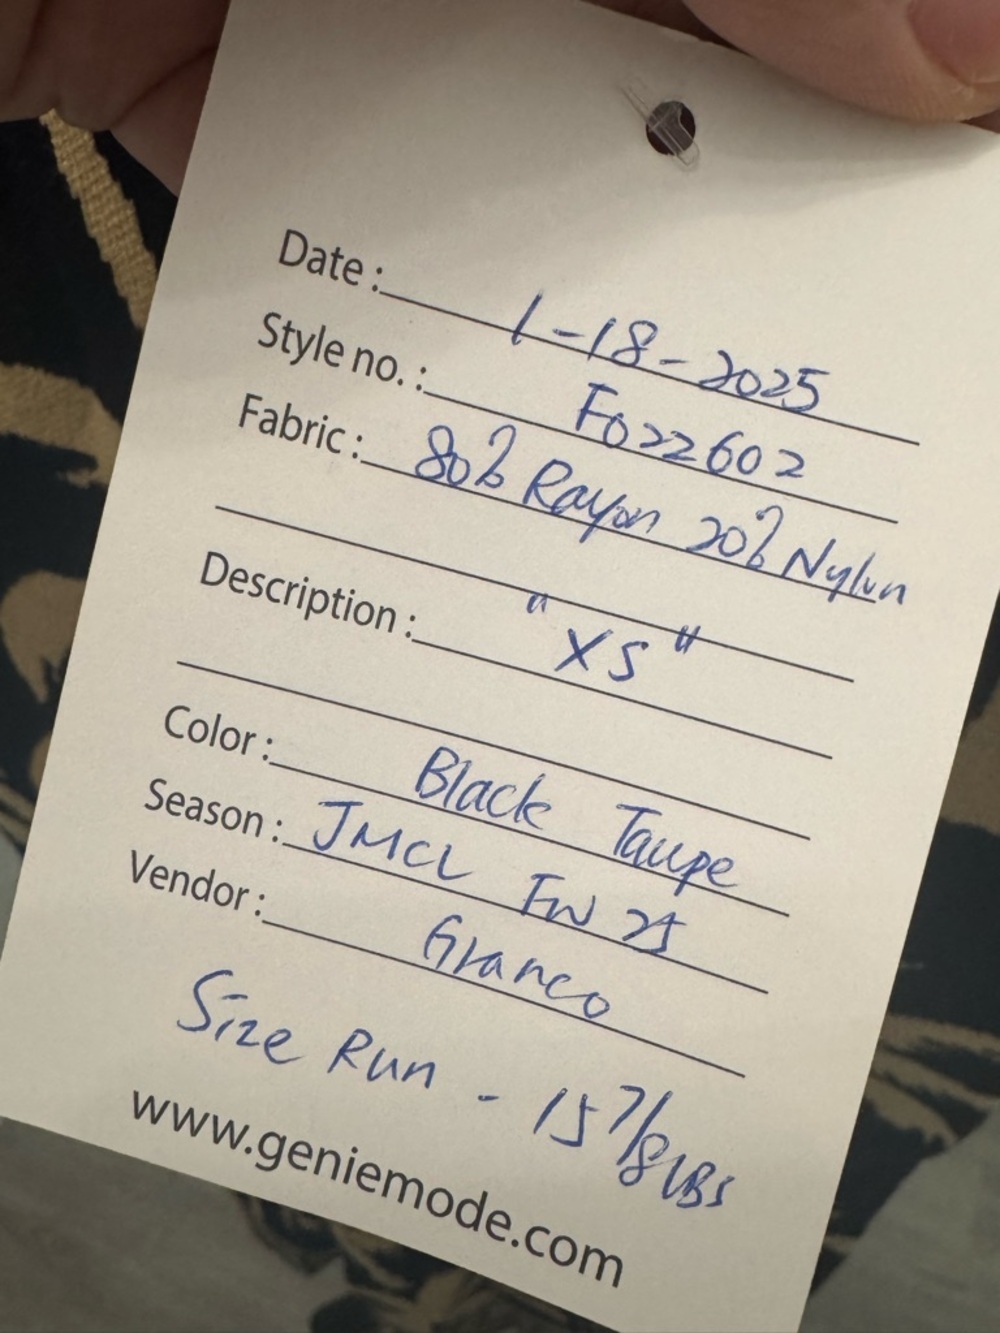 Date : 1-18-2025
Style no. : F022602
Fabric : 80% Rayon 20% Nylon
Description : "XS"
Color : Black Taupe
Season : JMCL FW 25
Vendor : Granco
Size Run - 15 7/8 LBS
www.geniemode.com